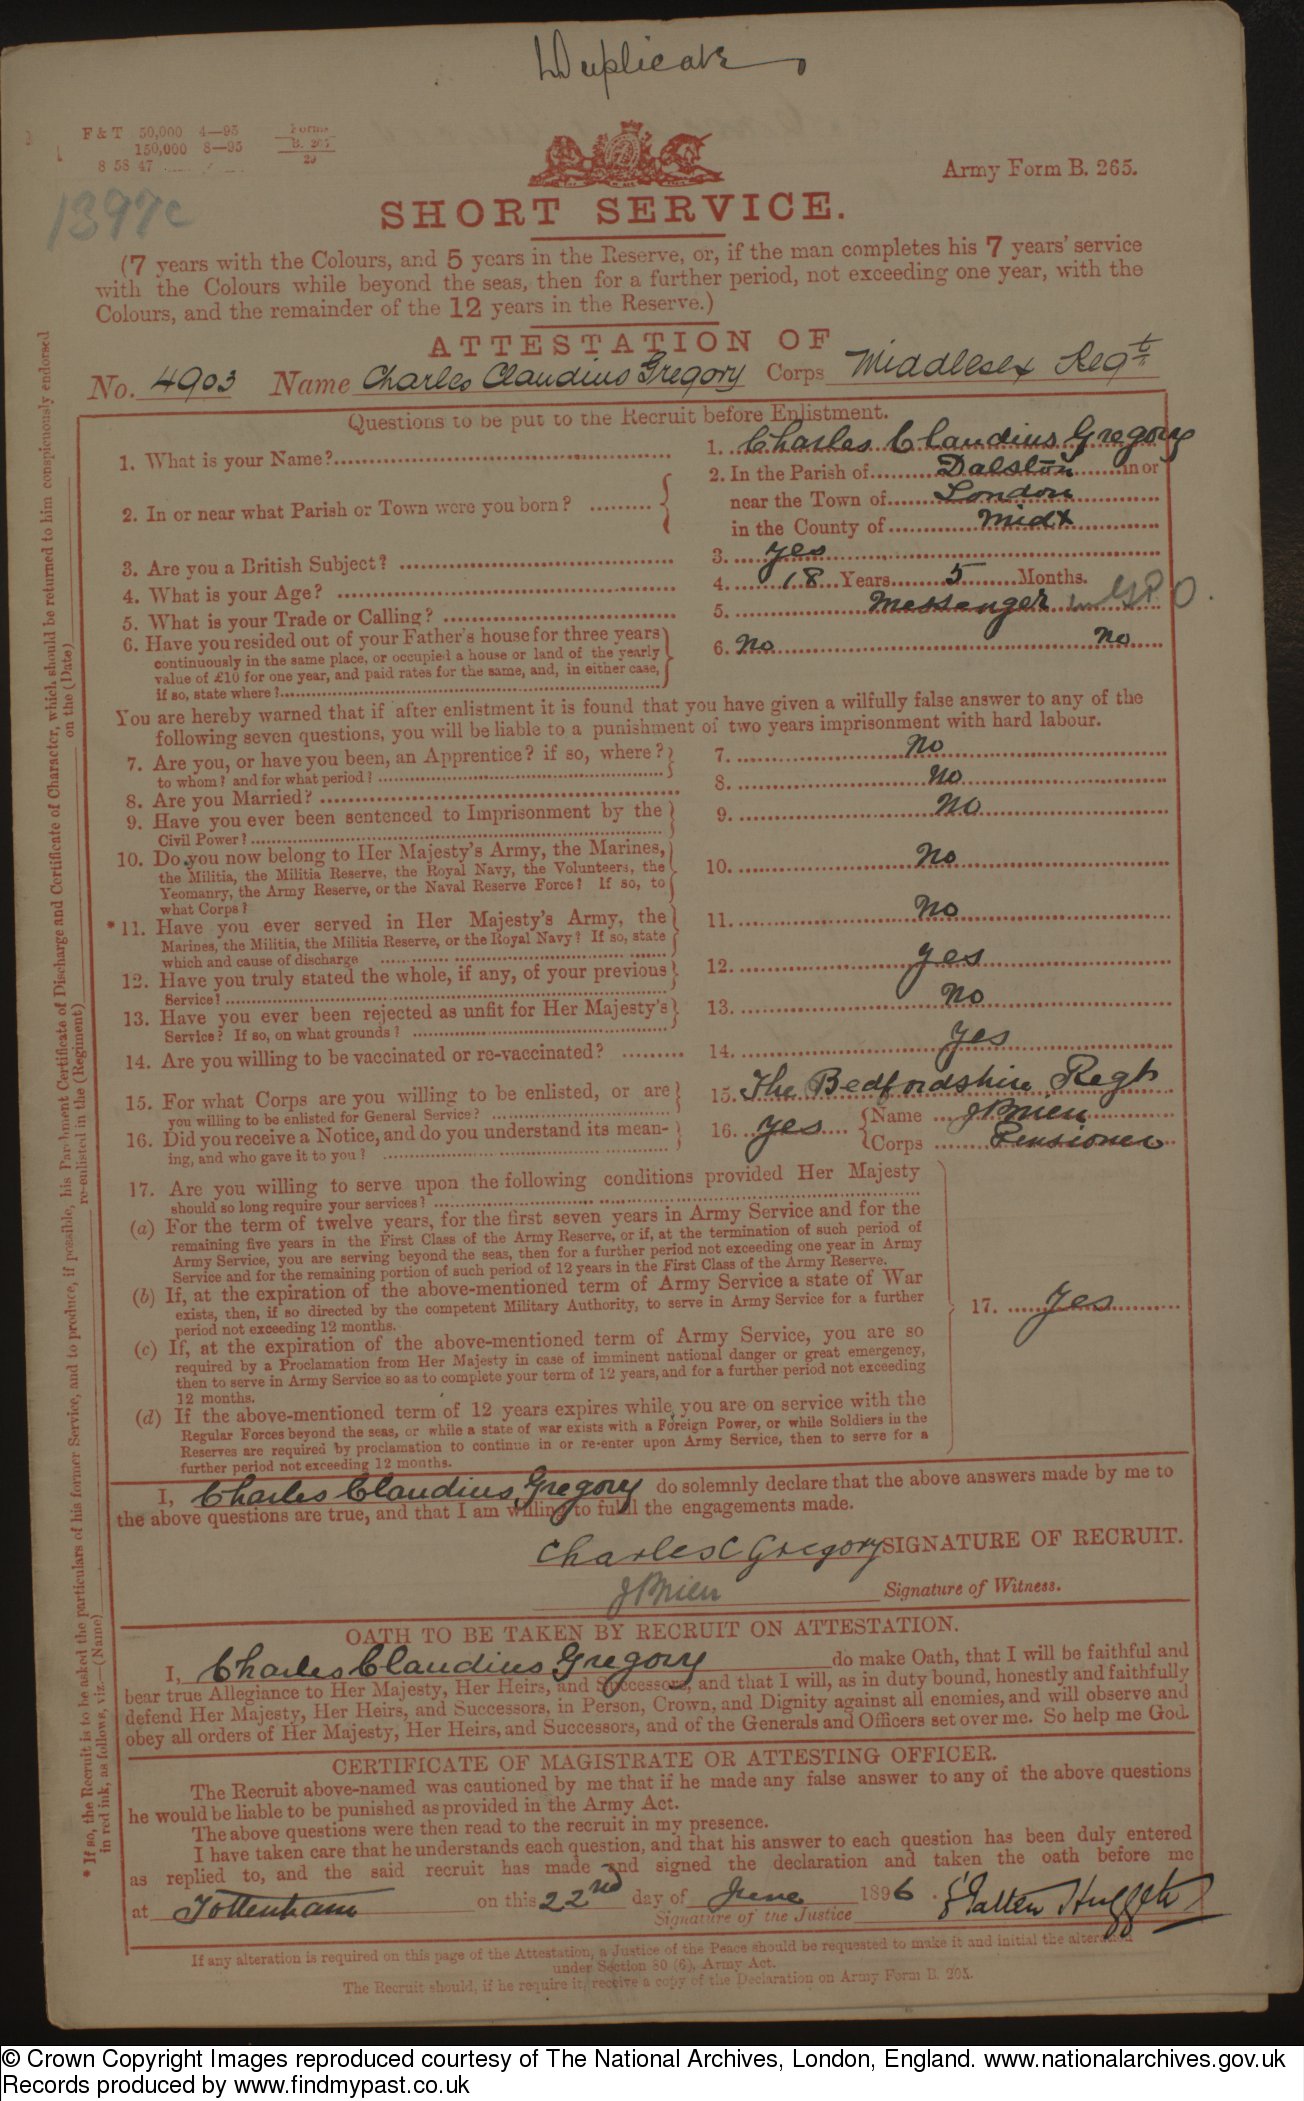 Duplicate
F & T 50,000 4—95
150,000 8—95
8 58 47
Forms
B. 265
29
Army Form B. 265.
1397c
SHORT SERVICE.
(7 years with the Colours, and 5 years in the Reserve, or, if the man completes his 7 years' service
with the Colours while beyond the seas, then for a further period, not exceeding one year, with the
Colours, and the remainder of the 12 years in the Reserve.)
ATTESTATION OF
No. 4903 Name Charles Claudius Gregory Corps Middlesex Regt
Questions to be put to the Recruit before Enlistment.
1. What is your Name? 1. Charles Claudius Gregory
2. In or near what Parish or Town were you born? 2. In the Parish of Dalston in or
near the Town of London
in the County of Midx
3. Are you a British Subject? 3. yes
4. What is your Age? 4. 18 Years 5 Months.
5. What is your Trade or Calling? 5. Messenger in G.P.O.
6. Have you resided out of your Father's house for three years 6. No No
continuously in the same place, or occupied a house or land of the yearly
value of £10 for one year, and paid rates for the same, and, in either case,
if so, state where?
You are hereby warned that if after enlistment it is found that you have given a wilfully false answer to any of the
following seven questions, you will be liable to a punishment of two years imprisonment with hard labour.
7. Are you, or have you been, an Apprentice? if so, where? 7. No
to whom? and for what period?
8. Are you Married? 8. No
9. Have you ever been sentenced to Imprisonment by the 9. No
Civil Power?
10. Do you now belong to Her Majesty's Army, the Marines, 10. No
the Militia, the Militia Reserve, the Royal Navy, the Volunteers, the
Yeomanry, the Army Reserve, or the Naval Reserve Force? If so, to
what Corps?
*11. Have you ever served in Her Majesty's Army, the 11. No
Marines, the Militia, the Militia Reserve, or the Royal Navy? If so, state
which and cause of discharge
12. Have you truly stated the whole, if any, of your previous 12. yes
Service?
13. Have you ever been rejected as unfit for Her Majesty's 13. No
Service? If so, on what grounds?
14. Are you willing to be vaccinated or re-vaccinated? 14. yes
15. For what Corps are you willing to be enlisted, or are 15. The Bedfordshire Regt
you willing to be enlisted for General Service?
16. Did you receive a Notice, and do you understand its mean- 16. yes Name J Brien
ing, and who gave it to you? Corps Pensioner
17. Are you willing to serve upon the following conditions provided Her Majesty
should so long require your services?
(a) For the term of twelve years, for the first seven years in Army Service and for the
remaining five years in the First Class of the Army Reserve, or if, at the termination of such period of
Army Service, you are serving beyond the seas, then for a further period not exceeding one year in Army
Service and for the remaining portion of such period of 12 years in the First Class of the Army Reserve.
(b) If, at the expiration of the above-mentioned term of Army Service a state of War
exists, then, if so directed by the competent Military Authority, to serve in Army Service for a further
period not exceeding 12 months.
17. yes
(c) If, at the expiration of the above-mentioned term of Army Service, you are so
required by a Proclamation from Her Majesty in case of imminent national danger or great emergency,
then to serve in Army Service so as to complete your term of 12 years, and for a further period not exceeding
12 months.
(d) If the above-mentioned term of 12 years expires while you are on service with the
Regular Forces beyond the seas, or while a state of war exists with a Foreign Power, or while Soldiers in the
Reserves are required by proclamation to continue in or re-enter upon Army Service, then to serve for a
further period not exceeding 12 months.
I, Charles Claudius Gregory do solemnly declare that the above answers made by me to
the above questions are true, and that I am willing to fulfil the engagements made.
Charles C Gregory SIGNATURE OF RECRUIT.
J Brien Signature of Witness.
OATH TO BE TAKEN BY RECRUIT ON ATTESTATION.
I, Charles Claudius Gregory do make Oath, that I will be faithful and
bear true Allegiance to Her Majesty, Her Heirs, and Successors, and that I will, as in duty bound, honestly and faithfully
defend Her Majesty, Her Heirs, and Successors, in Person, Crown, and Dignity against all enemies, and will observe and
obey all orders of Her Majesty, Her Heirs, and Successors, and of the Generals and Officers set over me. So help me God.
CERTIFICATE OF MAGISTRATE OR ATTESTING OFFICER.
The Recruit above-named was cautioned by me that if he made any false answer to any of the above questions
he would be liable to be punished as provided in the Army Act.
The above questions were then read to the recruit in my presence.
I have taken care that he understands each question, and that his answer to each question has been duly entered
as replied to, and the said recruit has made and signed the declaration and taken the oath before me
at Tottenham on this 22nd day of June 1896.
Signature of the Justice Huggett
If any alteration is required on this page of the Attestation, a Justice of the Peace should be requested to make it and initial the alteration
under Section 80 (6), Army Act.
The Recruit should, if he require it, receive a copy of the Declaration on Army Form B. 265.
* If so, the Recruit is to be asked the particulars of his former Service, and to produce, if possible, his Parchment Certificate of Discharge and Certificate of Character, which should be returned to him conspicuously endorsed
in red ink, as follows, viz.—(Name) re-enlisted in the (Regiment) on the (Date)
© Crown Copyright Images reproduced courtesy of The National Archives, London, England. www.nationalarchives.gov.uk
Records produced by www.findmypast.co.uk